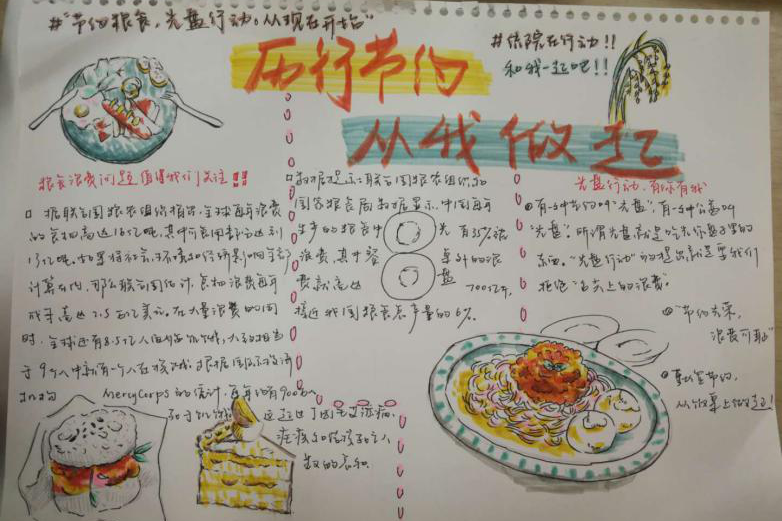 #"节约粮食,光盘行动。从现在开始"
厉行节约
从我做起
#体院在行动!!
和我一起吧!!
粮食浪费问题值得我们关注!!!
据联合国粮农组织预估,全球每年浪费
的食物高达16亿吨,其中可食用部分达到
13亿吨。如果将社会、环境和经济影响全部
计算在内,那么联合国估计,食物浪费每年
成本高达2.5万亿美元。在大量浪费的同
时,全球还有8.5亿人面临饥饿,大约相当
于9个人中就有一个人在挨饿。根据国际救济
机构 MercyCorps的统计,每年约有900万人
死于饥饿,这超过了因死于疟疾、
三者
数据提示:联合国粮农组织和
国家粮食局数据显示,中国每年
生产的粮食中 有35%被
浪费,其中餐 桌外的浪
费就高达 700亿斤,
接近我国粮食总产量的6%。
光
盘
光盘行动,有你有我
有一种节约叫"光盘",有一种公益叫
"光盘"。所谓光盘就是吃光你盘子里的
东西。"光盘行动"的提出就是要我们
拒绝"舌尖上的浪费"。
"节约光荣,
浪费可耻"
节约,
从饭桌上做起!